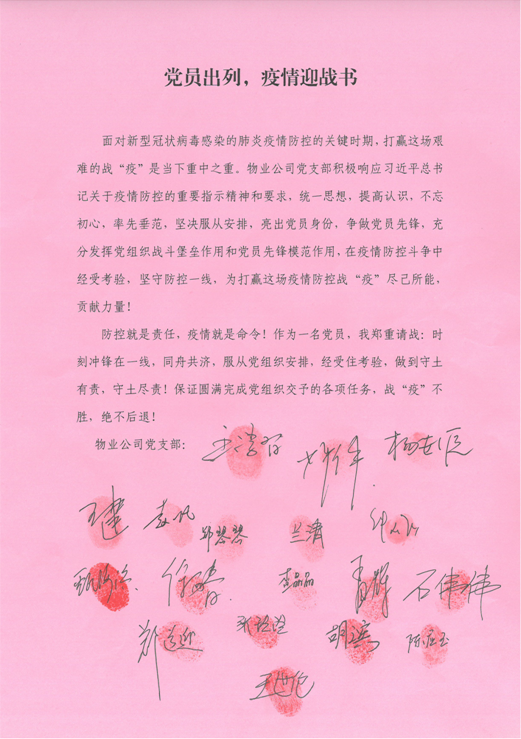 党员出列，疫情迎战书
面对新型冠状病毒感染的肺炎疫情防控的关键时期，打赢这场艰
难的战“疫”是当下重中之重。物业公司党支部积极响应习近平总书
记关于疫情防控的重要指示精神和要求，统一思想，提高认识，不忘
初心，率先垂范，坚决服从安排，亮出党员身份，争做党员先锋，充
分发挥党组织战斗堡垒作用和党员先锋模范作用，在疫情防控斗争中
经受考验，坚守防控一线，为打赢这场疫情防控战“疫”尽己所能，
贡献力量！
防控就是责任，疫情就是命令！作为一名党员，我郑重请战：时
刻冲锋在一线，同舟共济，服从党组织安排，经受住考验，做到守土
有责，守土尽责！保证圆满完成党组织交予的各项任务，战“疫”不
胜，绝不后退！
物业公司党支部：
王建
兰涛
李晶晶 石伟伟